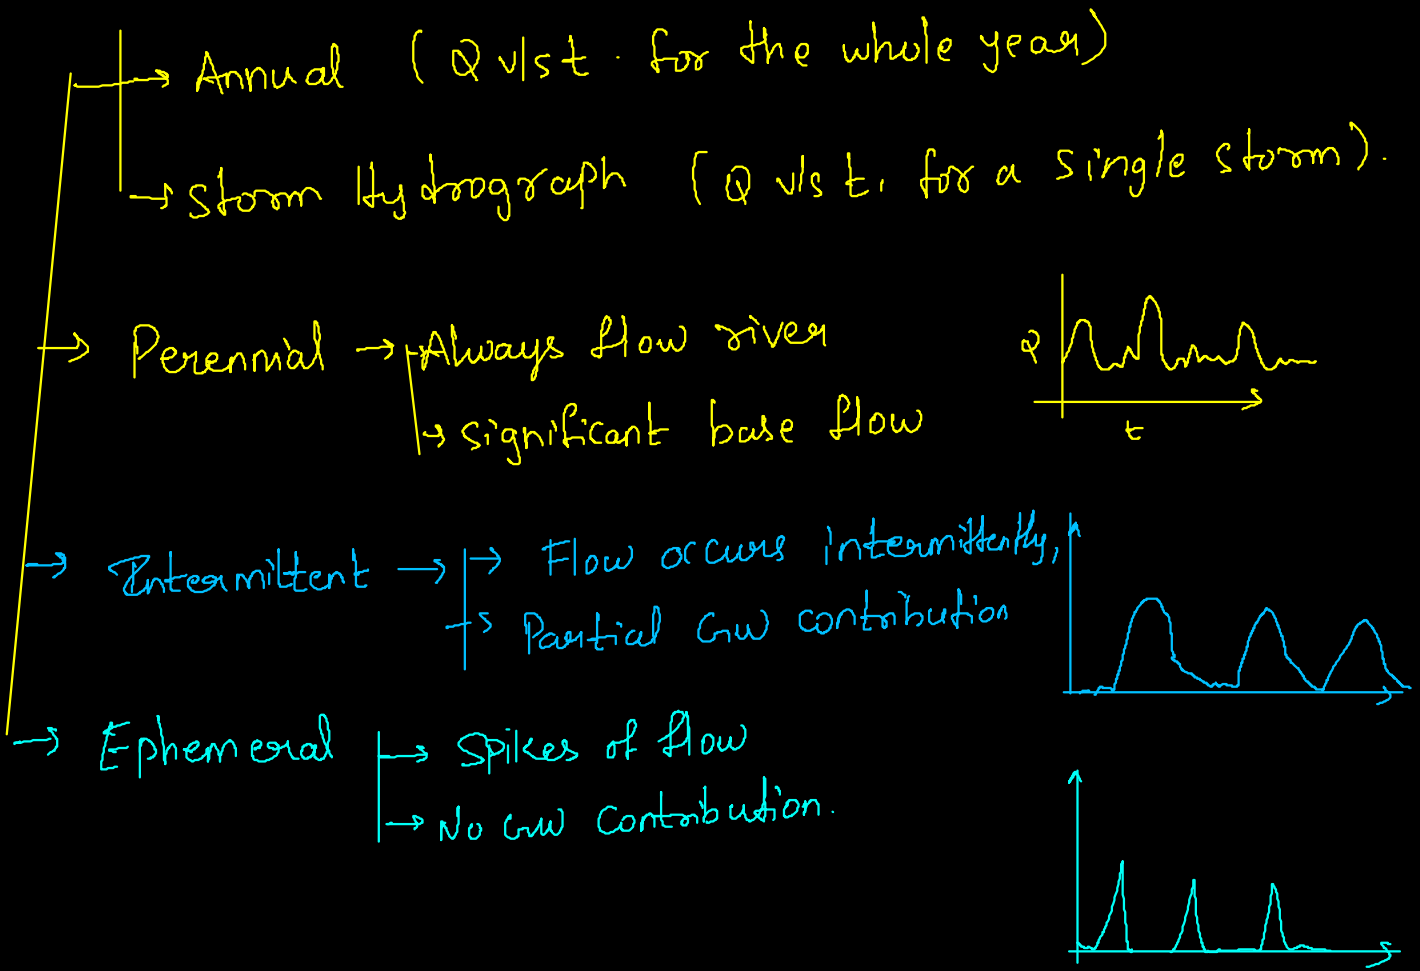 → Annual (Q v/s t. for the whole year)
→ Storm Hydrograph (Q v/s t, for a single storm).
→ Perennial → Always flow river
→ significant base flow
Q
t
→ Intermittent → → Flow occurs intermittently,
→ Partial GW contribution
→ Ephemeral → Spikes of flow
→ No GW contribution.